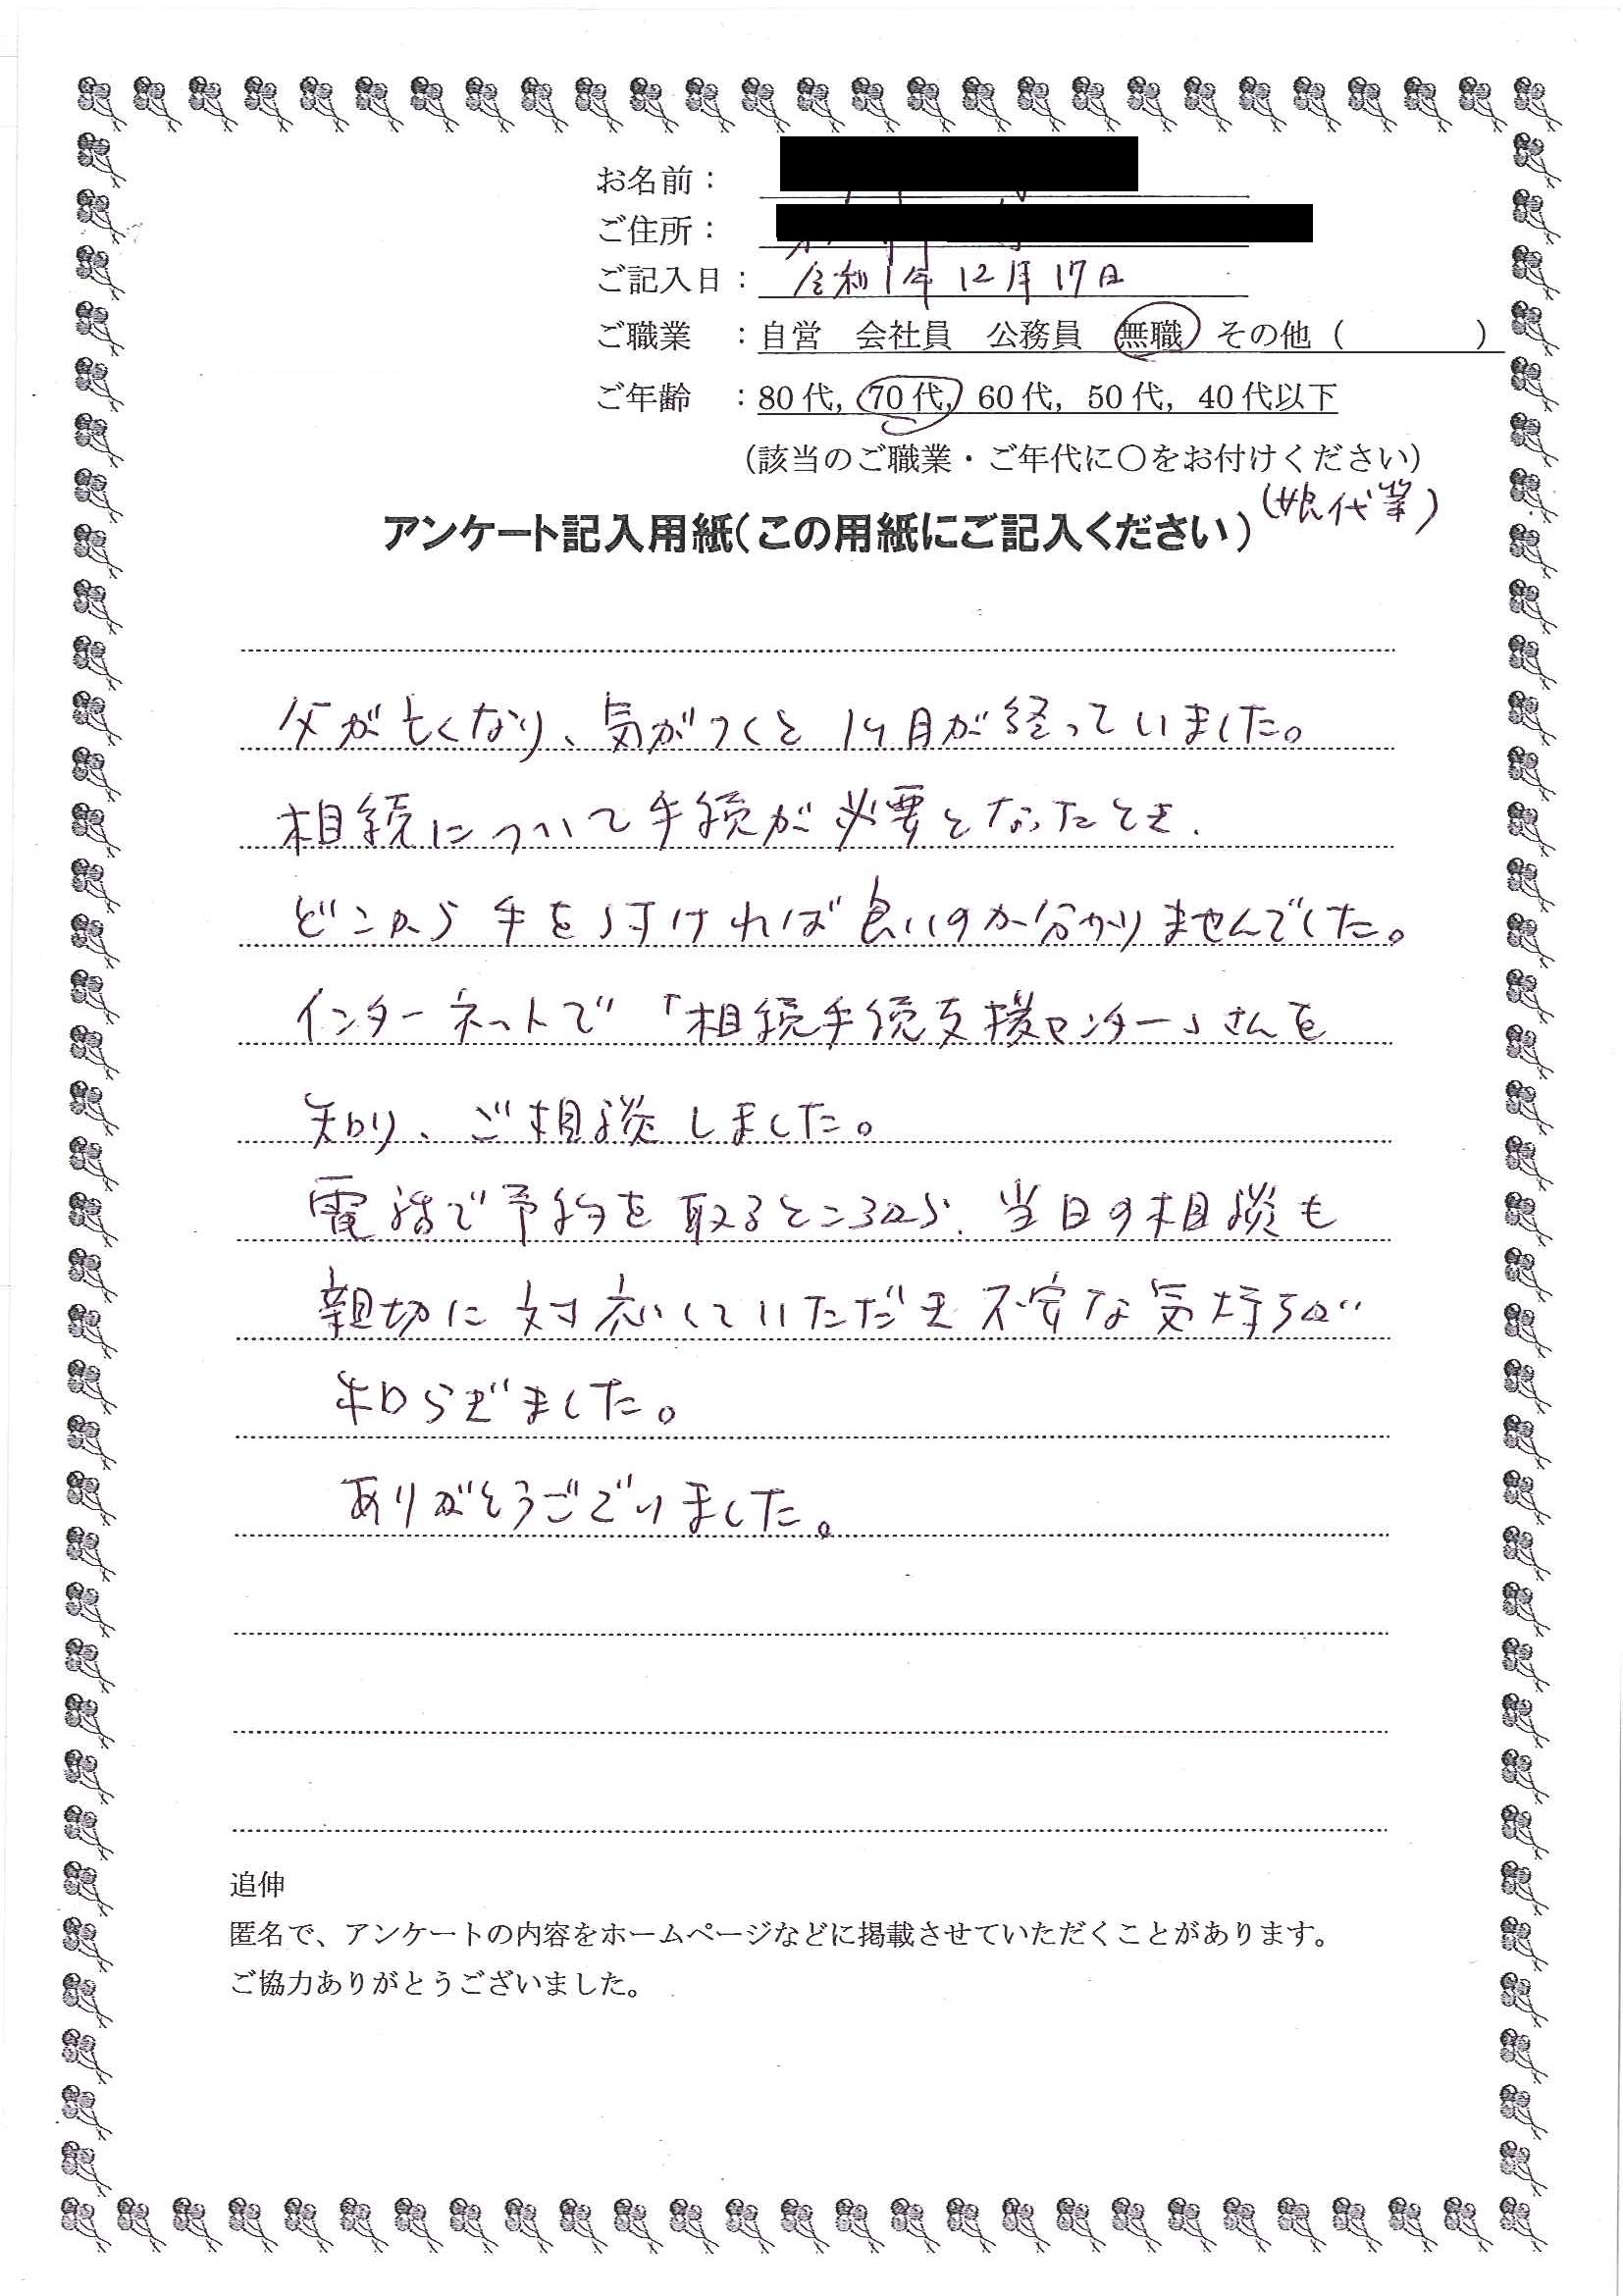 お名前：
ご住所：
ご記入日：令和1年12月17日
ご職業　：自営　会社員　公務員　無職　その他（　　　　）
ご年齢　：80代，70代，60代，50代，40代以下
（該当のご職業・ご年代に〇をお付けください）
（娘代筆）
アンケート記入用紙（この用紙にご記入ください）
父が亡くなり、気がつくと1ヶ月が経っていました。
相続について手続が必要となったとき、
どこから手を付ければ良いのか分かりませんでした。
インターネットで「相続手続支援センター」さんを
知り、ご相談しました。
電話で予約を取るところから、当日の相談も
親切に対応していただき不安な気持ちが
和らぎました。
ありがとうございました。
追伸
匿名で、アンケートの内容をホームページなどに掲載させていただくことがあります。
ご協力ありがとうございました。